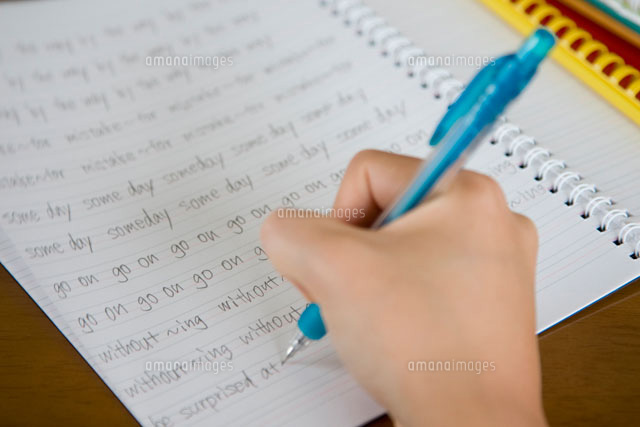 by the way by the way by the way
by the way by the way by the way
mistake~for mistake~for mistake
mistake~for mistake~for mistake~for
some day some day someday some day some day
some day someday some day some day some day
go on go on go on go on go on go on
go on go on go on go on
without ~ing without
without ~ing without
be surprised at
amanaimages
amanaimages
amanaimages
amanaimages
amanaimages